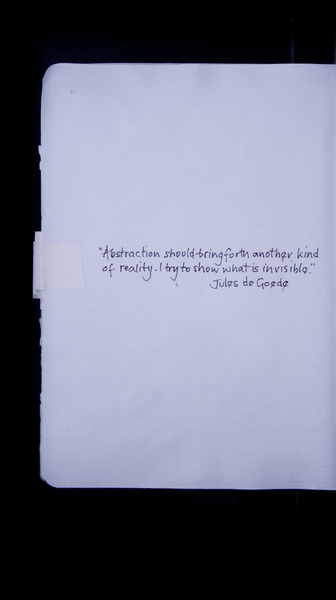 "Abstraction should bring forth another kind
of reality. I try to show what is invisible."
Jules de Goede